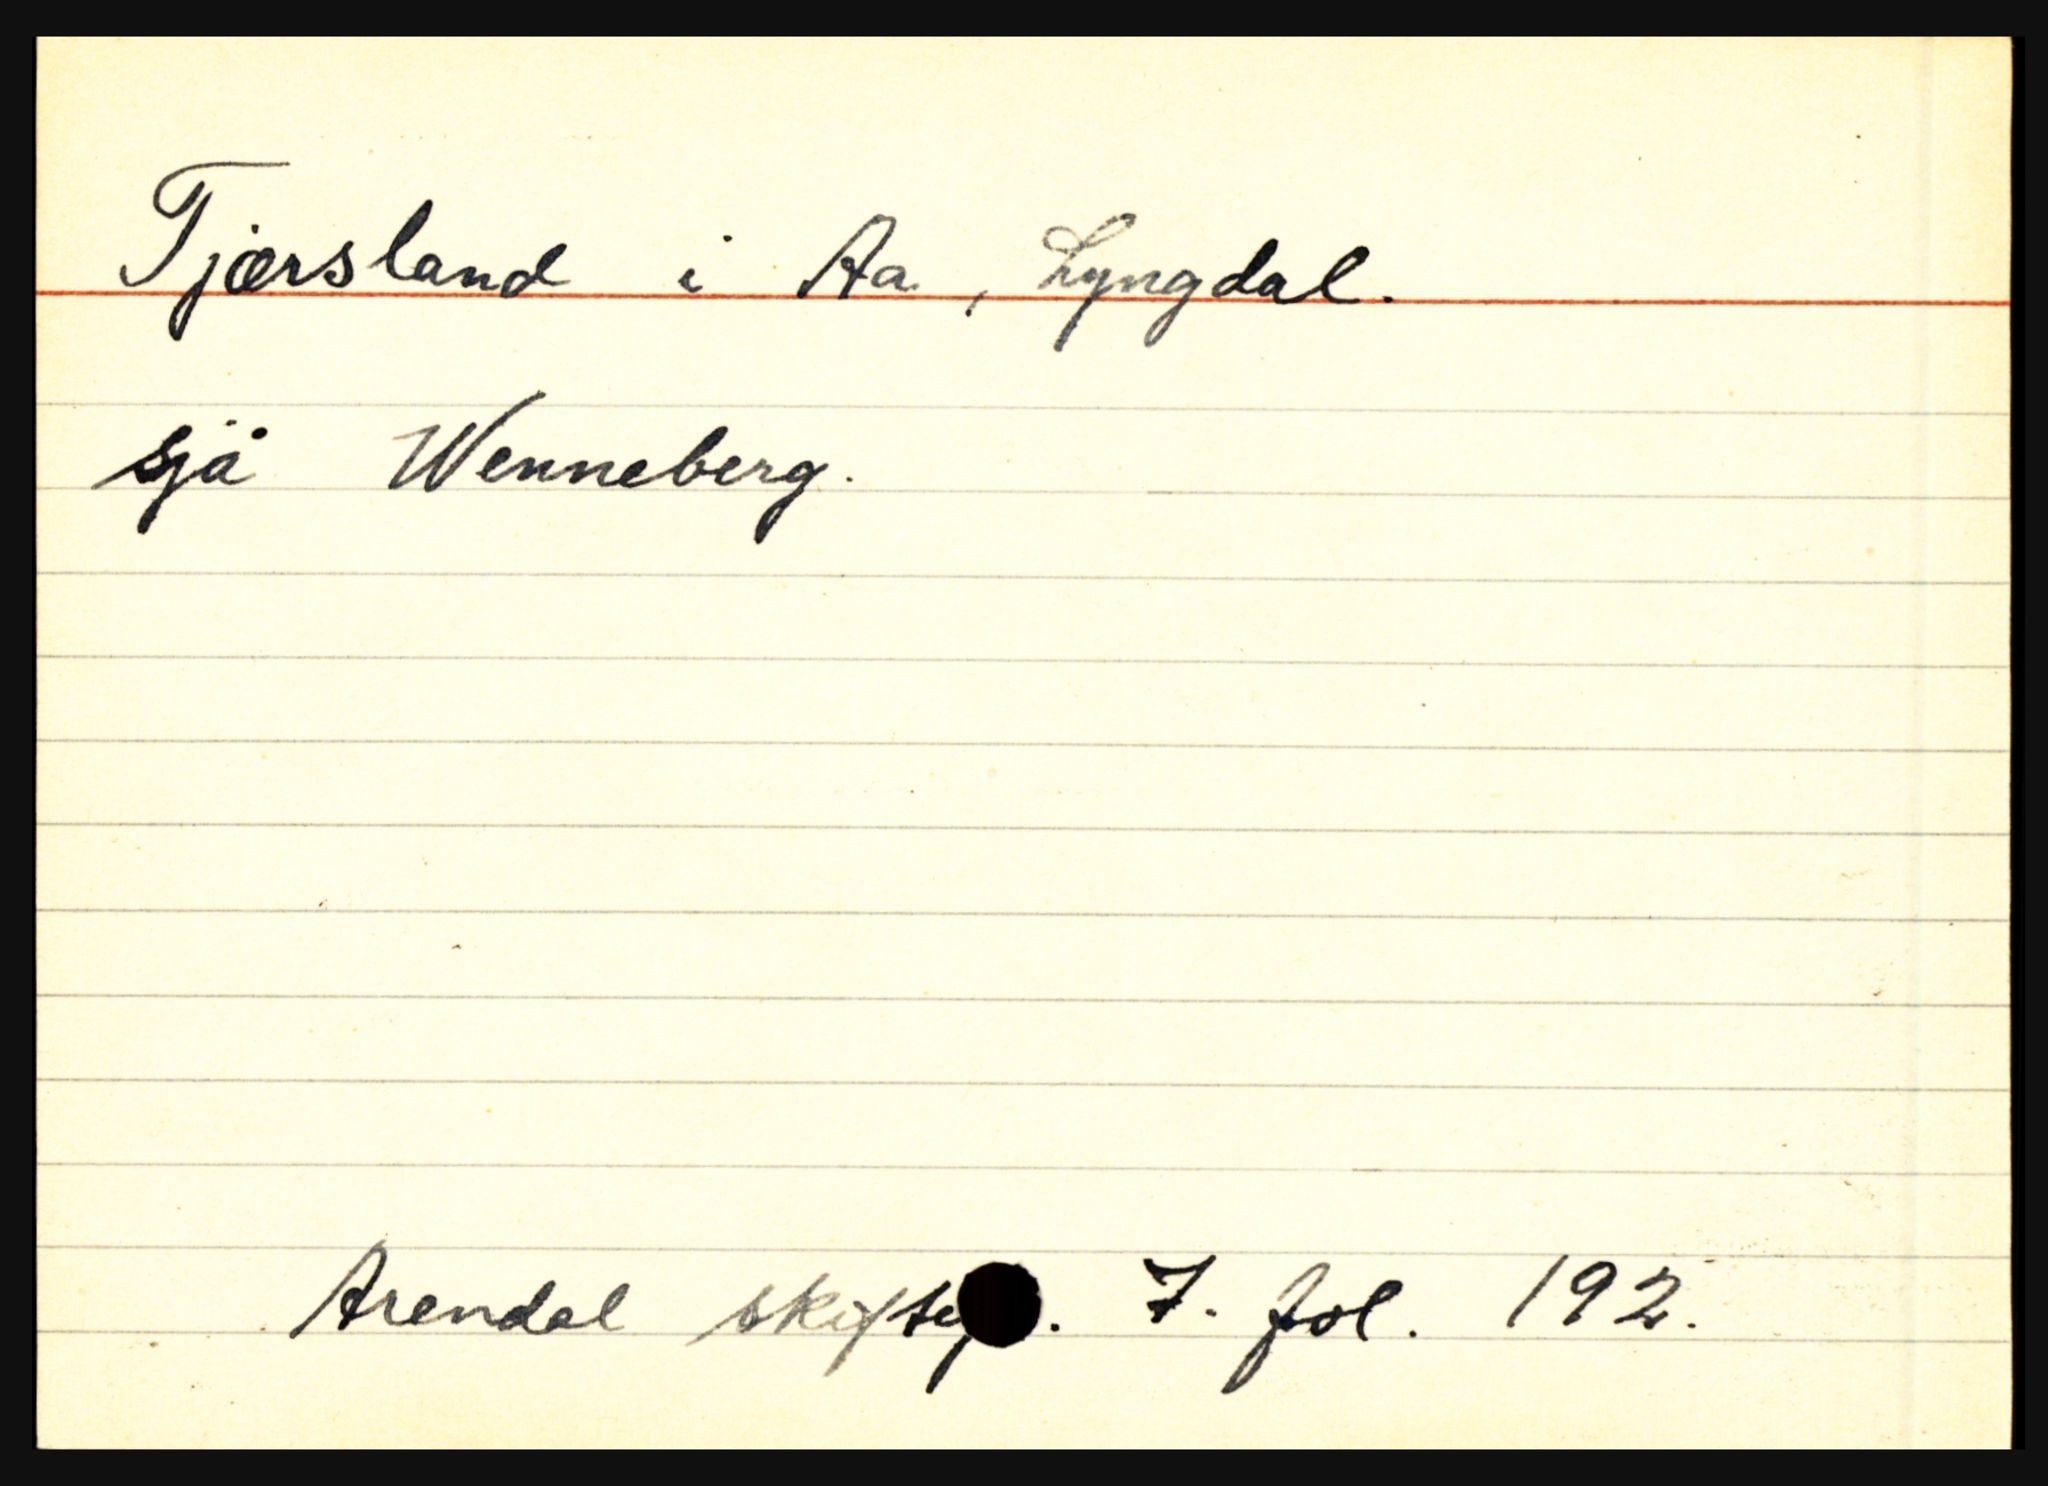 Tjærsland i Aa, Lyngdal.
sjå Wenneberg.
Arendal 7. fol. 192.